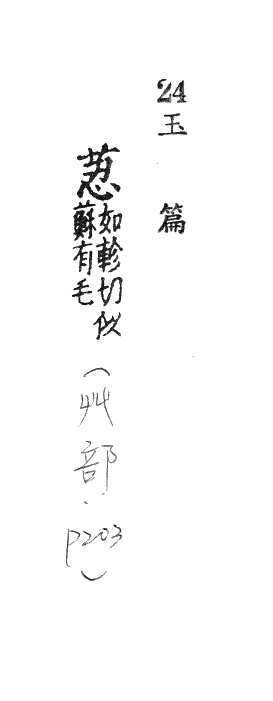 24玉篇
荵如軫切似蘇有毛（艸部．P203）